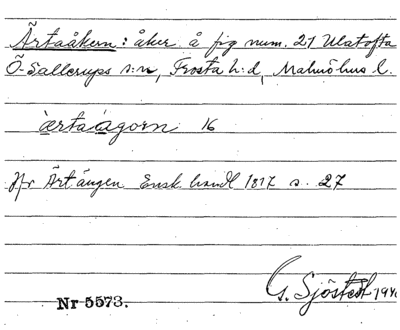 Ärtaåkern: åker å fig num. 21 Ulatofta
Ö-Sallerups s:n, Frosta h:d, Malmöhus l.
àrtaágorn 16
Jfr Ärtängen Ensk handl 1817 s. 27
G. Sjöstedt 194
Nr 5573.